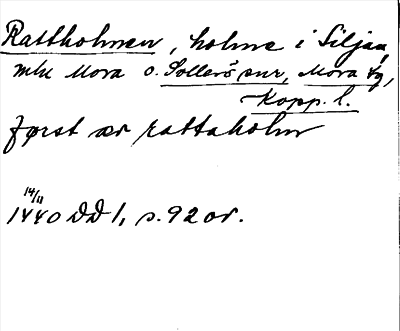 Rattholmen, holme i Siljan,
mlu Mora o. Sollerö snr, Mora tg,
Kopp. l.
først ær rattaholm
14/11
1440 DD 1, s. 92 or.